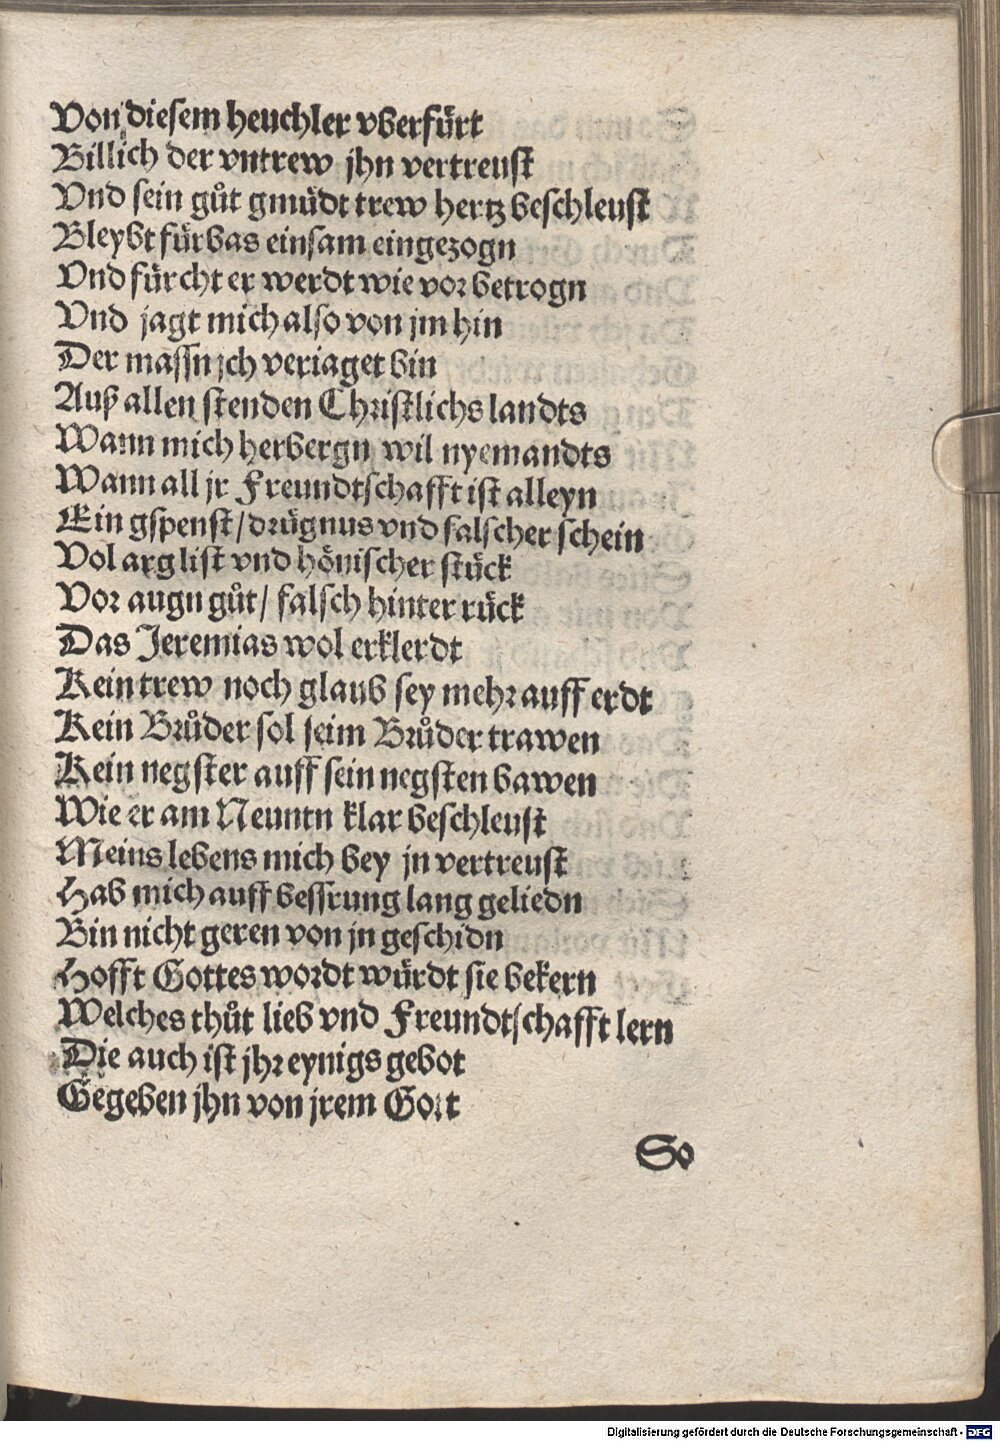 Von diesem heuchler vberfürt
Billich der vntrew jhn vertreust
Vnd sein gůt gmüdt trew hertz beschleust
Bleybt fürbas einsam eingezogn
Vnd fürcht er werdt wie vor betrogn
Vnd jagt mich also von jm hin
Der massn jch veriaget bin
Auß allen stenden Christlichs landts
Wann mich herbergn wil nyemandts
Wann all jr Freundtschafft ist alleyn
Ein gspenst / drügnus vnd falscher schein
Vol arglist vnd hönischer stück
Vor augn gůt / falsch hinter rück
Das Jeremias wol erklerdt
Kein trew noch glaub sey mehr auff erdt
Kein Brůder sol seim Brůder trawen
Kein negster auff sein negsten bawen
Wie er am Neuntn klar beschleust
Meins lebens mich bey jn vertreust
Hab mich auff bessrung lang geliedn
Bin nicht geren von jn geschidn
Hofft Gottes wordt würdt sie bekern
Welches thůt lieb vnd Freundtschafft lern
Die auch ist jhr eynigs gebot
Gegeben jhn von jrem Gott
So
Digitalisierung gefördert durch die Deutsche Forschungsgemeinschaft - DFG